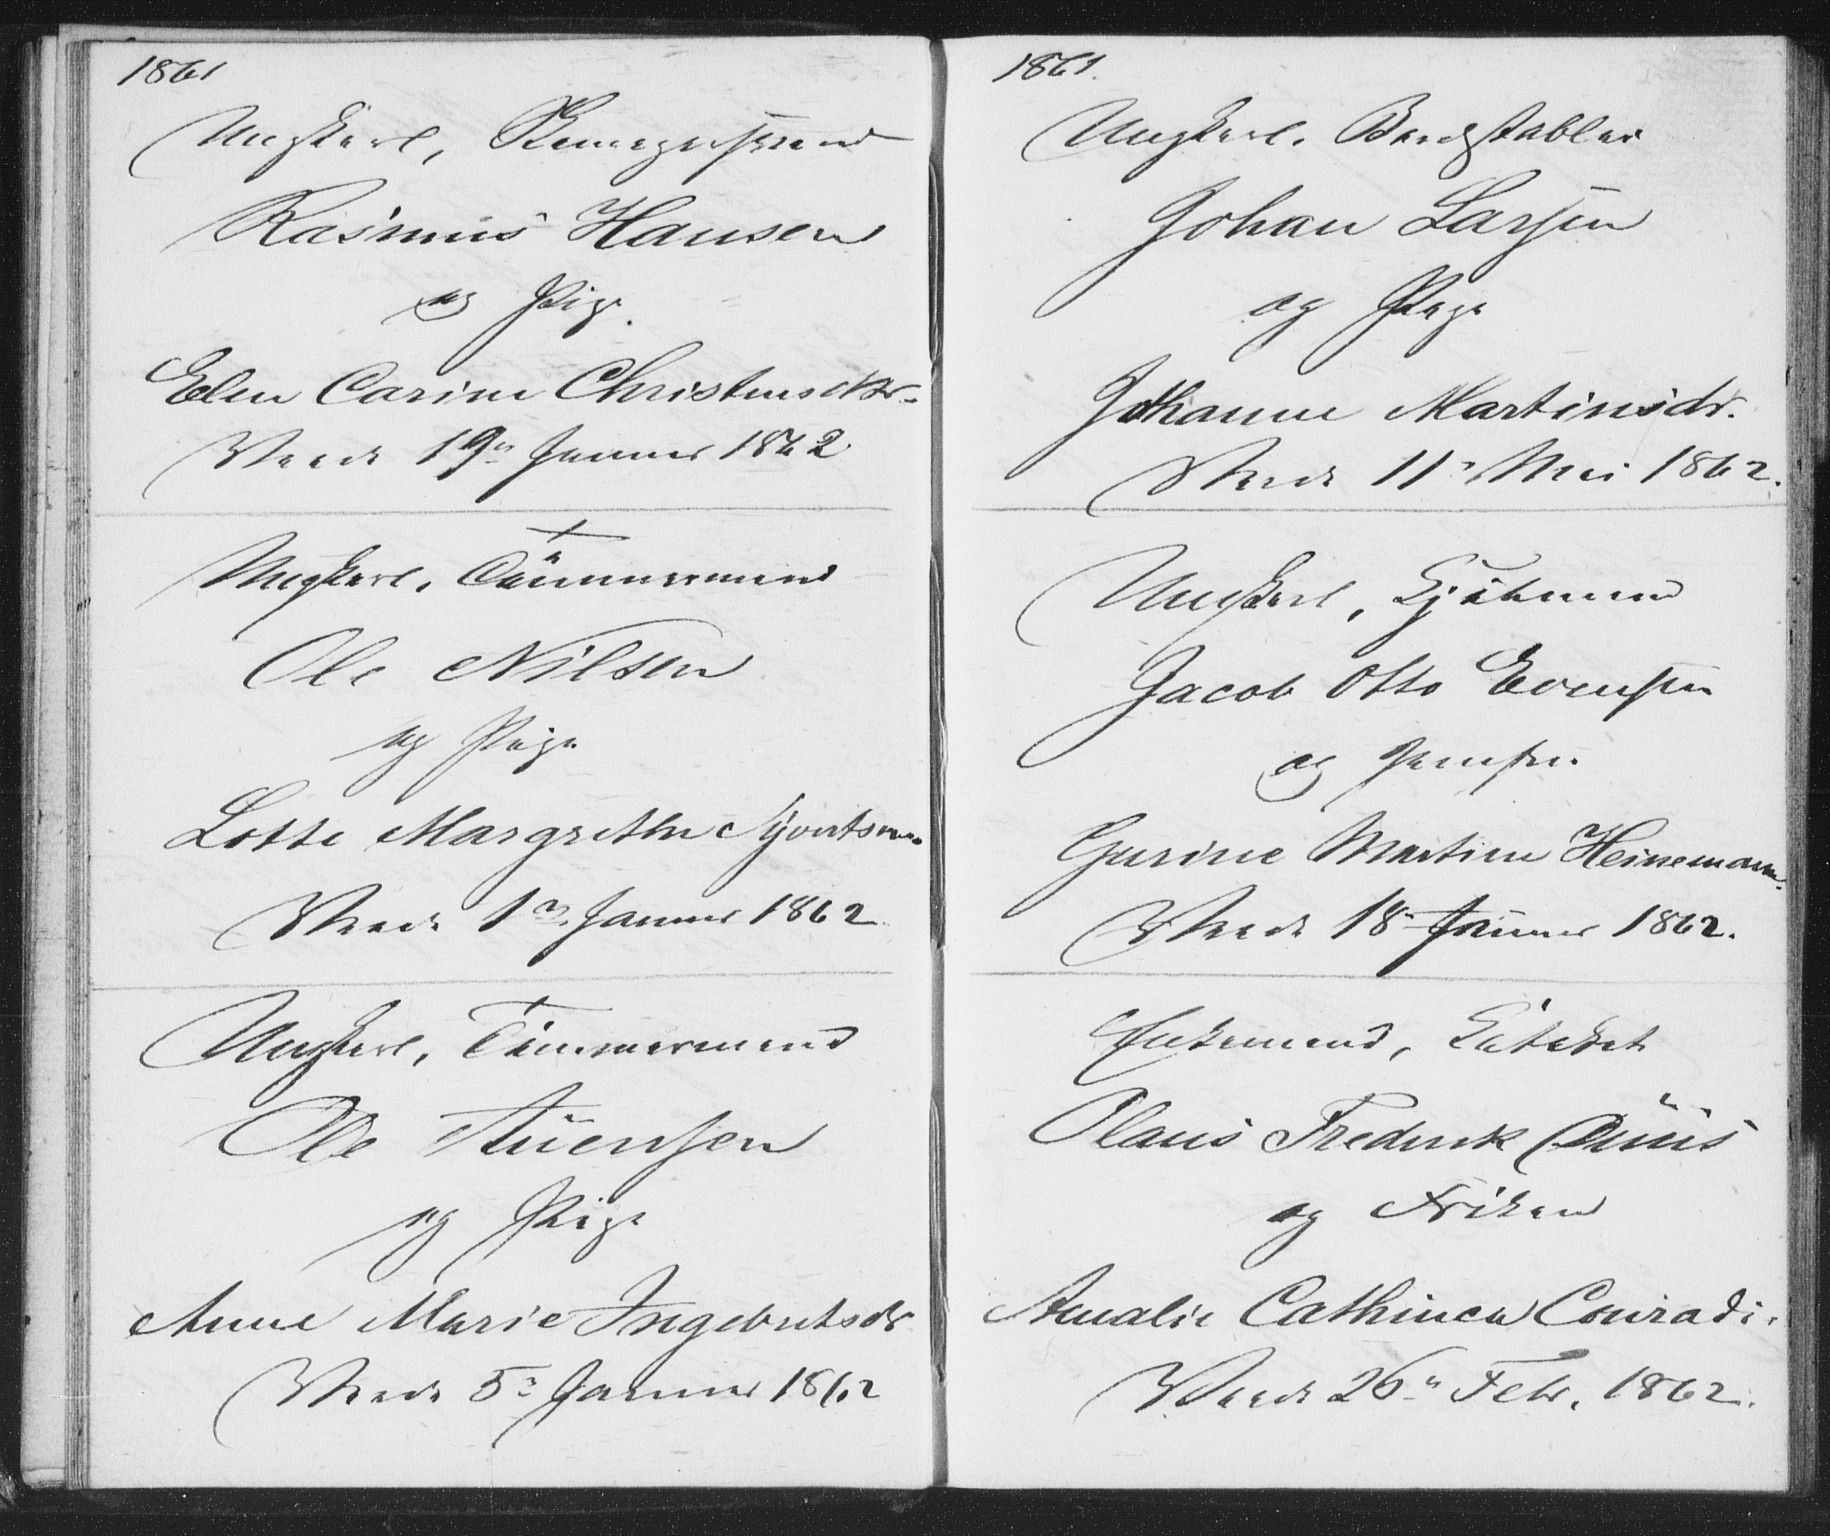 1861
Ungkarl,
Rasmus Hansen
og Pige
Elen Carine Christensdtr.
Viede 19de Januar 1862
Ungkarl, Tømmermand
Ole Nilsen
og Pige
Lotte Margrethe Syvertsen
Viede 1ste Januar 1862
Ungkarl, Tømmermand
Ole Auensen
og Pige
Anne Marie Ingebretsdr
Viede 5te Januar 1862
1861.
Ungkarl. Bordstabler
Johan Larsen
og Pige
Johanne Martinsdr.
Viede 11te Mai 1862.
Ungkarl,
Jacob Otto Evensen
og Jomfru
Gurine Martine Heinemann.
Viede 18de Januar 1862.
Enkemand,
Olaus Frederik Duus
og Frøken
Amalie Cathinca Conradi.
Viede 26de Febr. 1862.